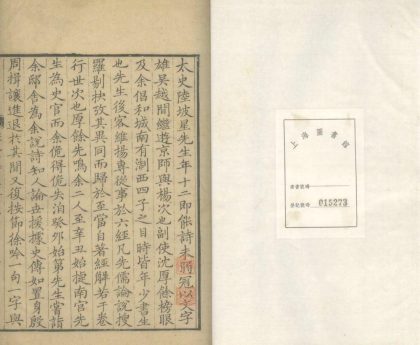 太史陸坡星先生年十二即能詩未弱冠以文字
雄吳越間繼遊京師與楊次也副使沈厚餘榜眼
及余倡和城南有浙西四子之目時皆年少書生
也先生後家維揚專從事於六經凡先儒論說搜
羅剔抉攷其異同而歸於至當自著經解若干卷
行世次也厚餘先鳴余二人至辛丑始捷南宮先
生為史官而余俛得俛失洎癸卯始第先生嘗諸
余邸舍為余說詩知人論世援據史傳如置身殷
周揖讓進退於其間又復按節徐吟一句一字與
上海圖書館
索書號碼
登記號碼 015273